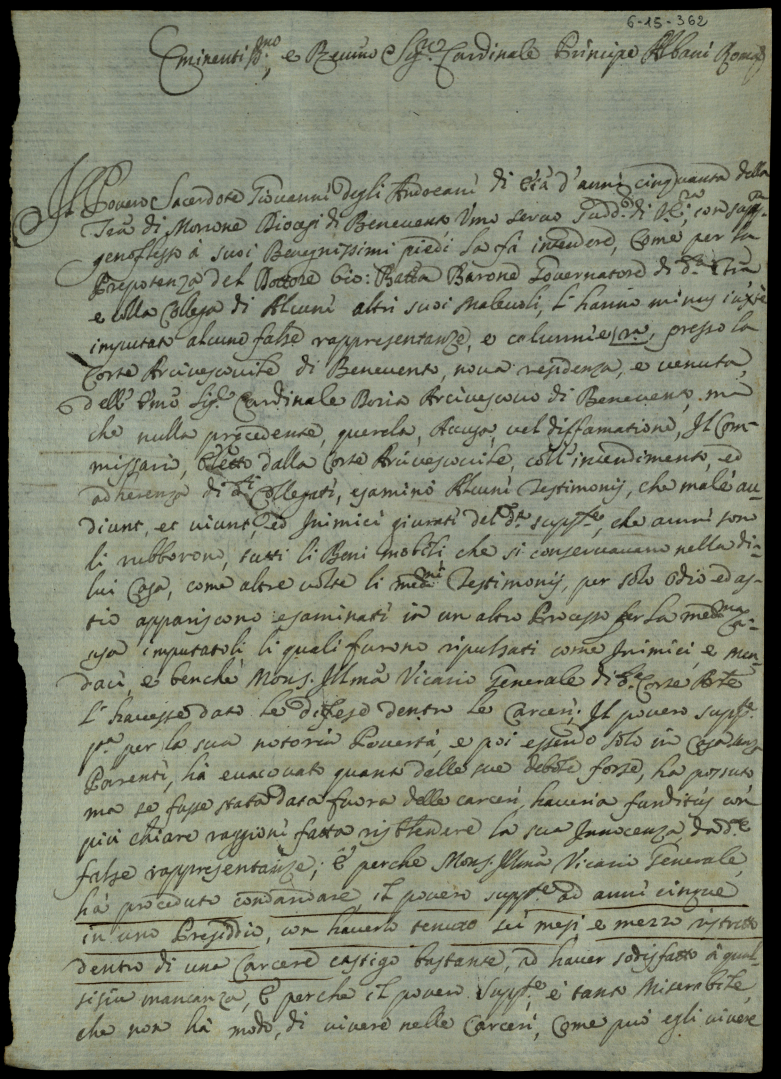 6-15-362
Eminentiss.mo, e Re.mo Sig.re Cardinale Principe Albani Roma
Il Povero Sacerdote Giovanni degli Andreani di età d'anni cinquanta della
Terra di Morrone Diocesi di Benevento Umo servo di V. Em.za con
genoflesso à suoi Benegnissimi piedi la fà intendere, Come per la
Prepotenza del Dottore Gio: Batta Barone Governatore di d.ta Terra
e colla Collega di Alcuni altri suoi malevoli, l'hanno minus iuste
imputato alcune false rappresentanze, e calunnie presso la
Corte Arcivescovile di Benevento, nova residenza, e venuta
dell' Emo Sig.re Cardinale Boria Arcivescovo di Benevento, mà
che nulla precedente querela, Accusa, vel diffamatione, Il Com-
missario, Eletto dalla Corte Arcivescovile, coll'intendimento, ed
adherenza di d.ti Collegati, esaminò Alcuni Testimonij, che malè au-
diunt, et viunt, ed Inimici giurati del d.to supp.te, che anni sono
li rubborono, tutti li Beni mobili che si conservavano nella di
lui Casa, come altre volte li med.mi Testimonij, per solo odio ed as-
tio appariscono esaminati in un altro Processo per la med.ma Ca-
usa imputatoli li quali furono ripulsati come Inimici, e men-
daci, e benche Mons. Illmo Vicario Generale di d.ta Corte Arc.le
L'havesse dato le difese dentro le Carceri, Il povero supp.te
p.ta per la sua notoria Povertà, e poi essendo solo in Casa senza
Parenti, hà evacovato quanto dalle sue debole forse, ha possuto
ma se fusse stata data fuora delle carceri, haveria funditùs con
più chiare raggioni fatta risplendere la sua Innocenza da d.te
false rappresentanze; E perche Mons. Illmo Vicario Generale,
hà proceduto condandare, il povero supp.te ad anni cinque
in uno Presiddio, con haverlo tenuto sei mesi e mezzo ristretto
dentro di una Carcere castigo bastante, ad haver sodisfatto à qual-
sisia mancanza, E perche il povero supp.te, è tanto Miserabile,
che non hà modo, di vivere nelle Carceri, Come può egli vivere